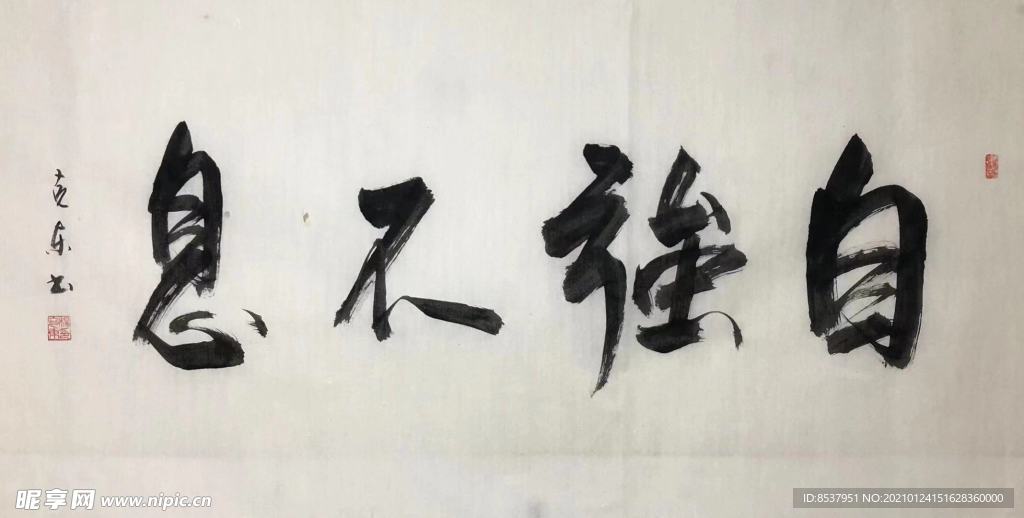 自强不息
克东书
昵享网 www.nipic.cn
ID:8537951 NO:20210124151628360000